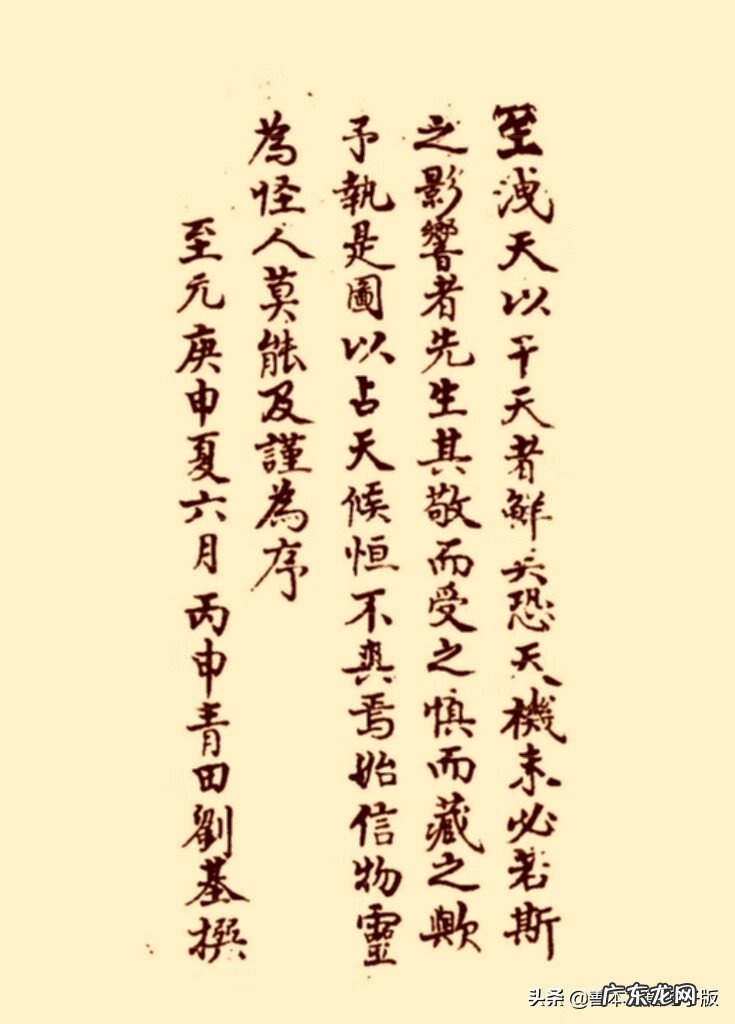 至洩天以干天者鮮矣恐天機未必若斯
之影響者先生其敬而受之慎而藏之歟
予執是圖以占天候恒不爽焉始信物靈
為怪人莫能及謹為序
至元庚申夏六月丙申青田劉基撰
头条 @善本
广东龙网
版